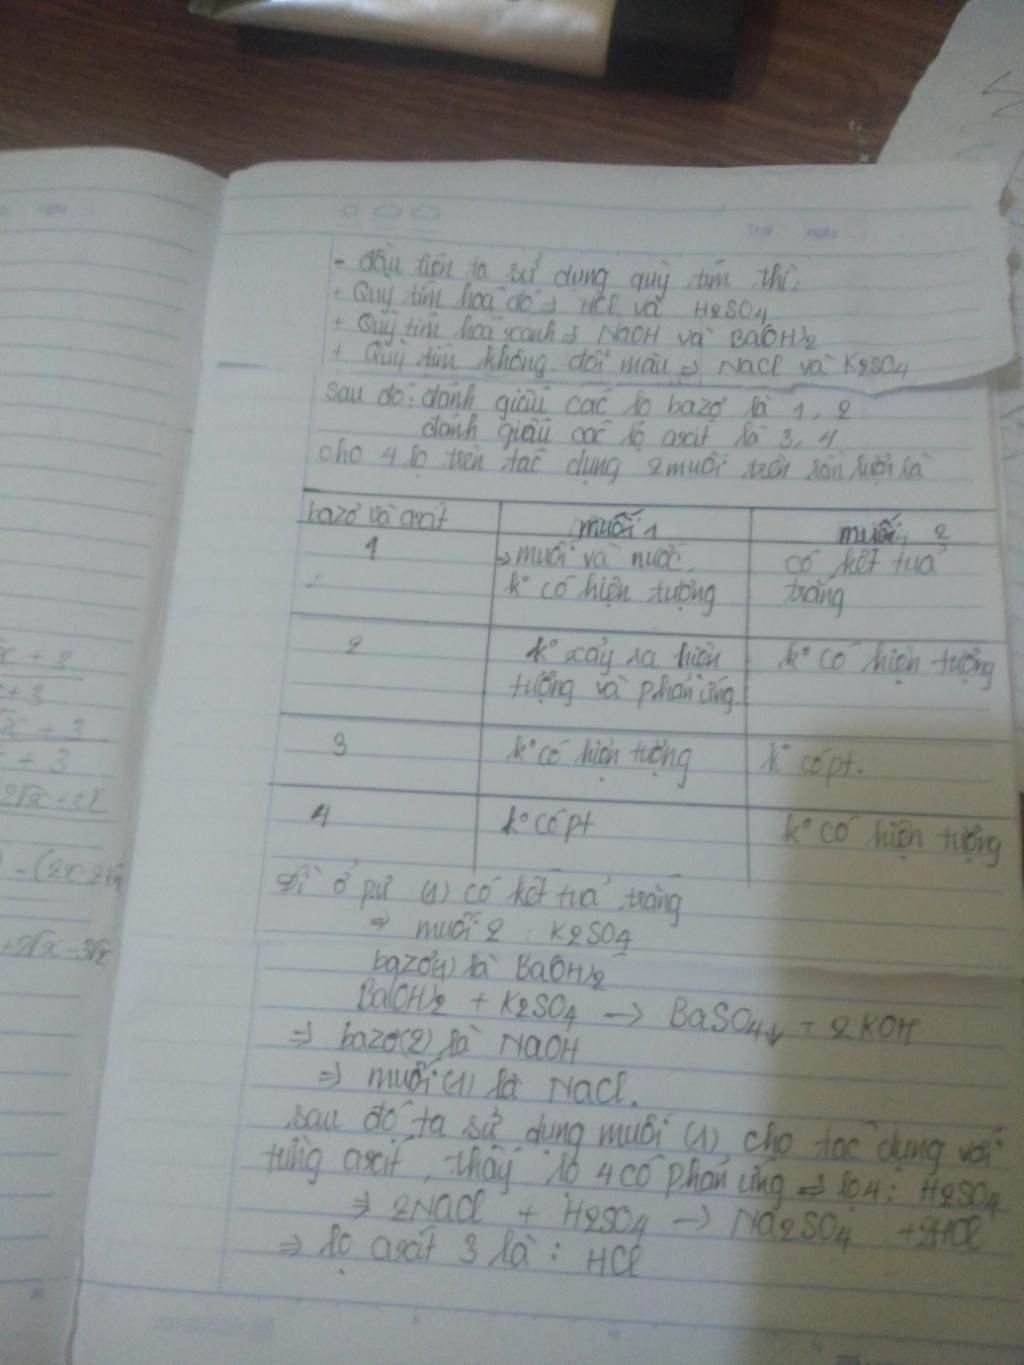 Thứ ngày
- đầu tiên ta sử dụng quỳ tím thì:
+ Quỳ tím hoá đỏ → HCl và H2SO4
+ Quỳ tím hoá xanh → NaOH và Ba(OH)2
+ Quỳ tím không đổi màu ⇒ NaCl và K2SO4
sau đó: đánh giấu các lọ bazơ là 1, 2
đánh giấu các lọ axit là 3, 4
cho 4 lọ trên tác dụng 2 muối trên lần lượt là
bazơ và axit muối 1 muối 2
1 → muối và nước. có kết tủa
k° có hiện tượng trắng
2 k° xảy ra hiện k° có hiện tượng
tượng và phản ứng.
3 k° có hiện tượng k° có pt.
4 k° có pt k° có hiện tượng
Vì ở pư (1) có kết tủa trắng
⇒ muối 2 : K2SO4
bazơ(1) là Ba(OH)2
Ba(OH)2 + K2SO4 → BaSO4↓ + 2KOH
⇒ bazơ(2) là NaOH
⇒ muối (1) là NaCl.
sau đó ta sử dụng muối (1) cho tác dụng với
từng axit, thấy lọ 4 có phản ứng ⇒ lọ 4: H2SO4
⇒ 2NaCl + H2SO4 → Na2SO4 + 2HCl
⇒ lọ axit 3 là : HCl
x + 3
x + 3
+ 3
- (2x - 2√x
+ 2√x - 3√x